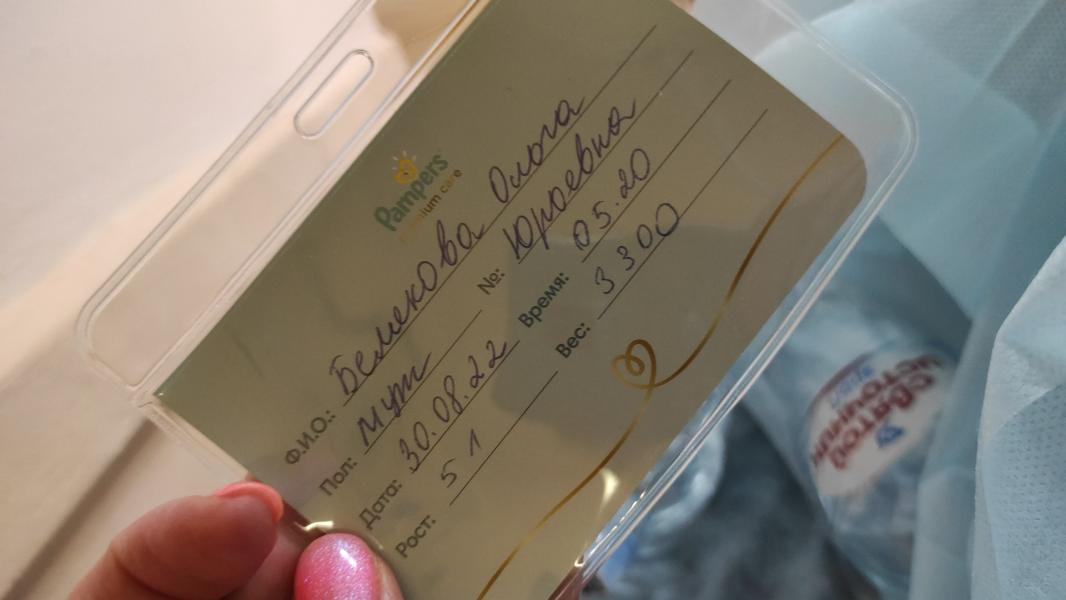 Pampers
premium care
Ф.И.О.: Белекова Ольга
Пол: муж №: Юрьевна
Дата: 30.08.22 Время: 05.20
Рост: 51 Вес: 3300
Святой
Источник